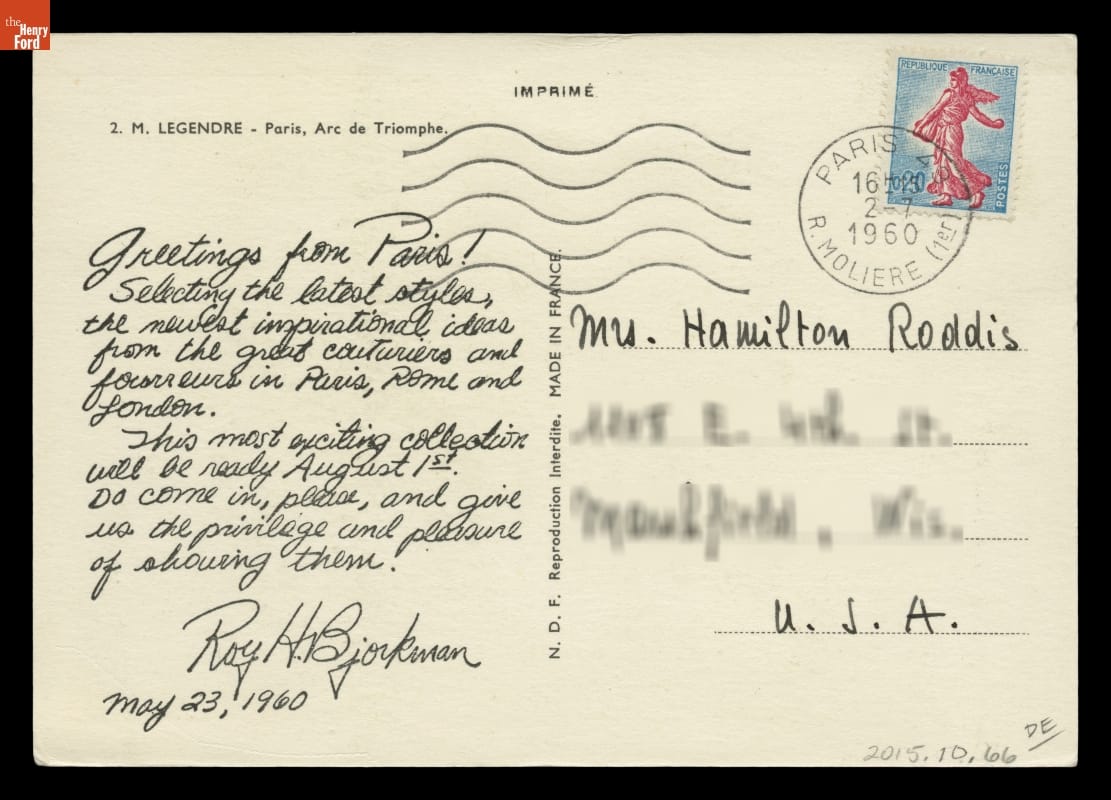 the
Henry
Ford
IMPRIMÉ
2. M. LEGENDRE - Paris, Arc de Triomphe.
REPUBLIQUE FRANÇAISE
0,20
POSTES
PARIS
16H15
2-7
1960
R. MOLIERE (1er)
Greetings from Paris!
Selecting the latest styles,
the newest inspirational ideas
from the great couturiers and
fourreurs in Paris, Rome and
London.
This most exciting collection
will be ready August 1st.
Do come in, please, and give
us the privilege and pleasure
of showing them.
Roy H. Bjorkman
May 23, 1960
N. D. F. Reproduction Interdite. MADE IN FRANCE.
Mrs. Hamilton Roddis
U. S. A.
DE
2015.10.66